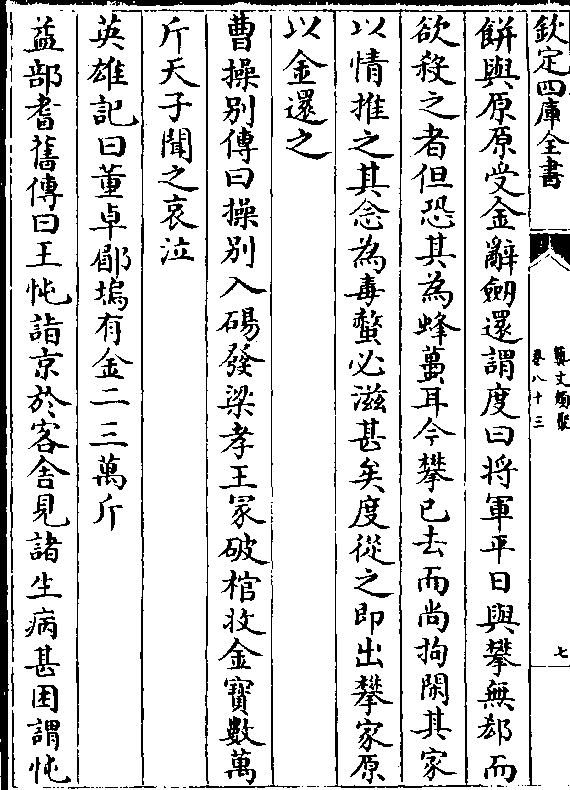 欽定四庫全書
藝文類聚
卷八十三
七
餅與原原受金辭劒還謂度曰将軍平日與攀無郄而
欲殺之者但恐其為蜂蠆耳今攀已去而尚拘閑其家
以情推之其念為毒螫必滋甚矣度從之即出攀家原
以金還之
曹操别傳曰操别入碭發梁孝王冢破棺收金寶數萬
斤天子聞之哀泣
英雄記曰董卓郿塢有金二三萬斤
益部耆舊傳曰王忳詣京於客舍見諸生病甚困謂忳